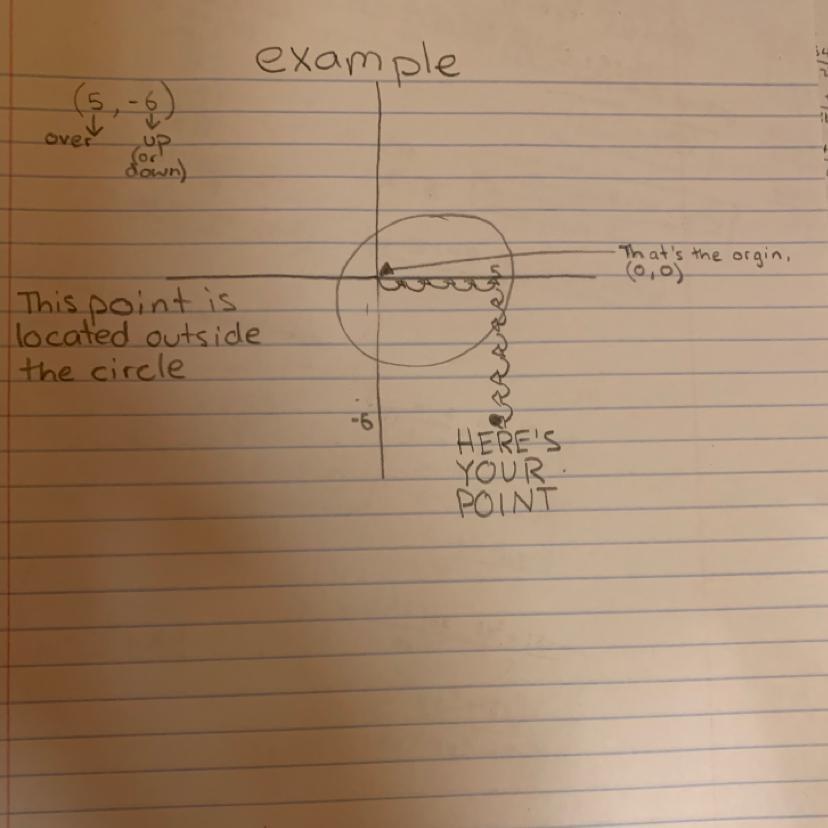 example
(5, -6)
over up
(or
down)
That's the orgin,
(0,0)
5
This point is
located outside
the circle
-6
HERE'S
YOUR
POINT